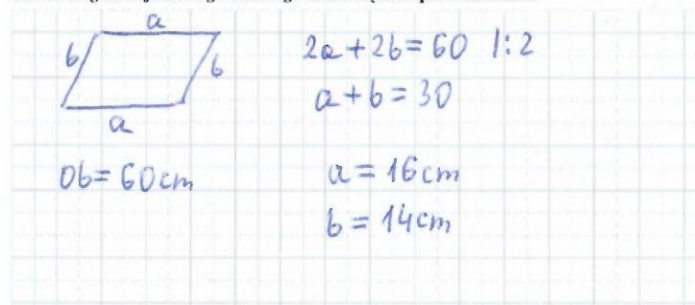 a
b
b
a
2a + 2b = 60 |:2
a + b = 30
Ob = 60cm
a = 16cm
b = 14cm